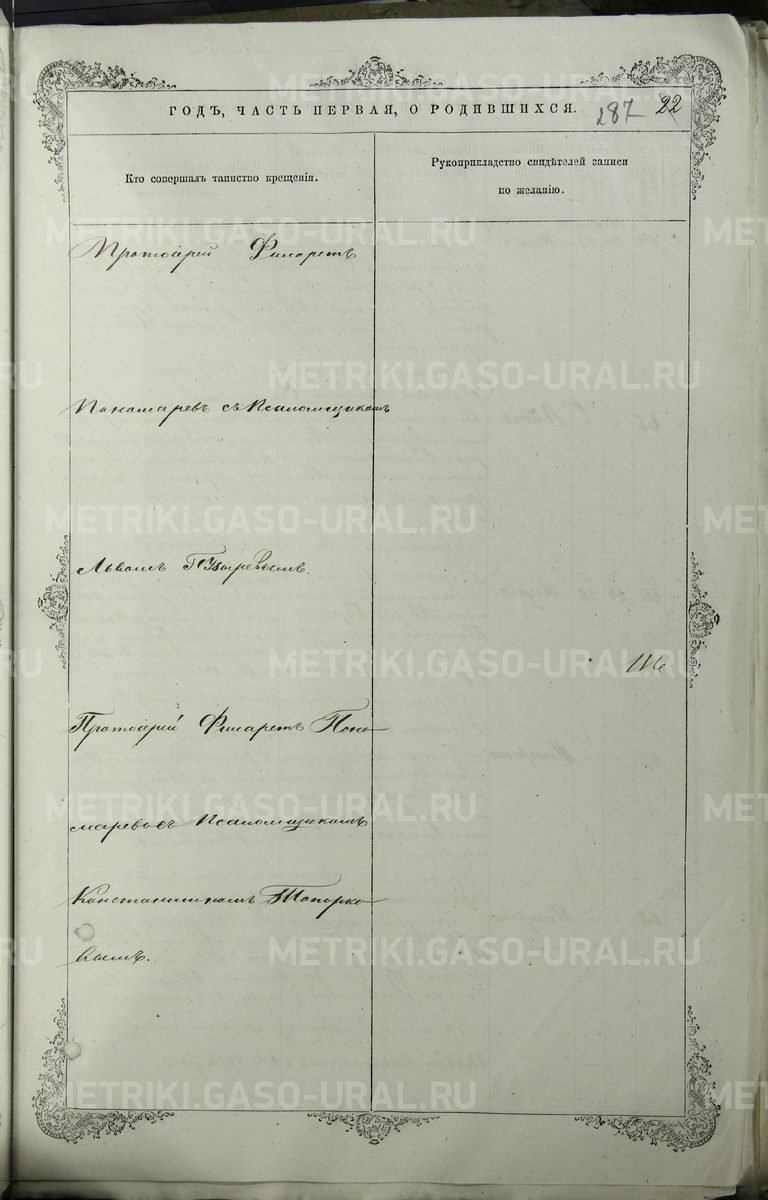 ГОДЪ, ЧАСТЬ ПЕРВАЯ, О РОДИВШИХСЯ.
287 22
Кто совершалъ таинство крещенія.
Рукоприкладство свидѣтелей записи
по желанію.
Протоіерей Филаретъ
Пономаревъ съ Псаломщикомъ
Львомъ
Протоіерей Филаретъ Поно-
маревъ съ Псаломщикомъ
Константиномъ Топорко-
вымъ.
METRIKI.GASO-URAL.RU